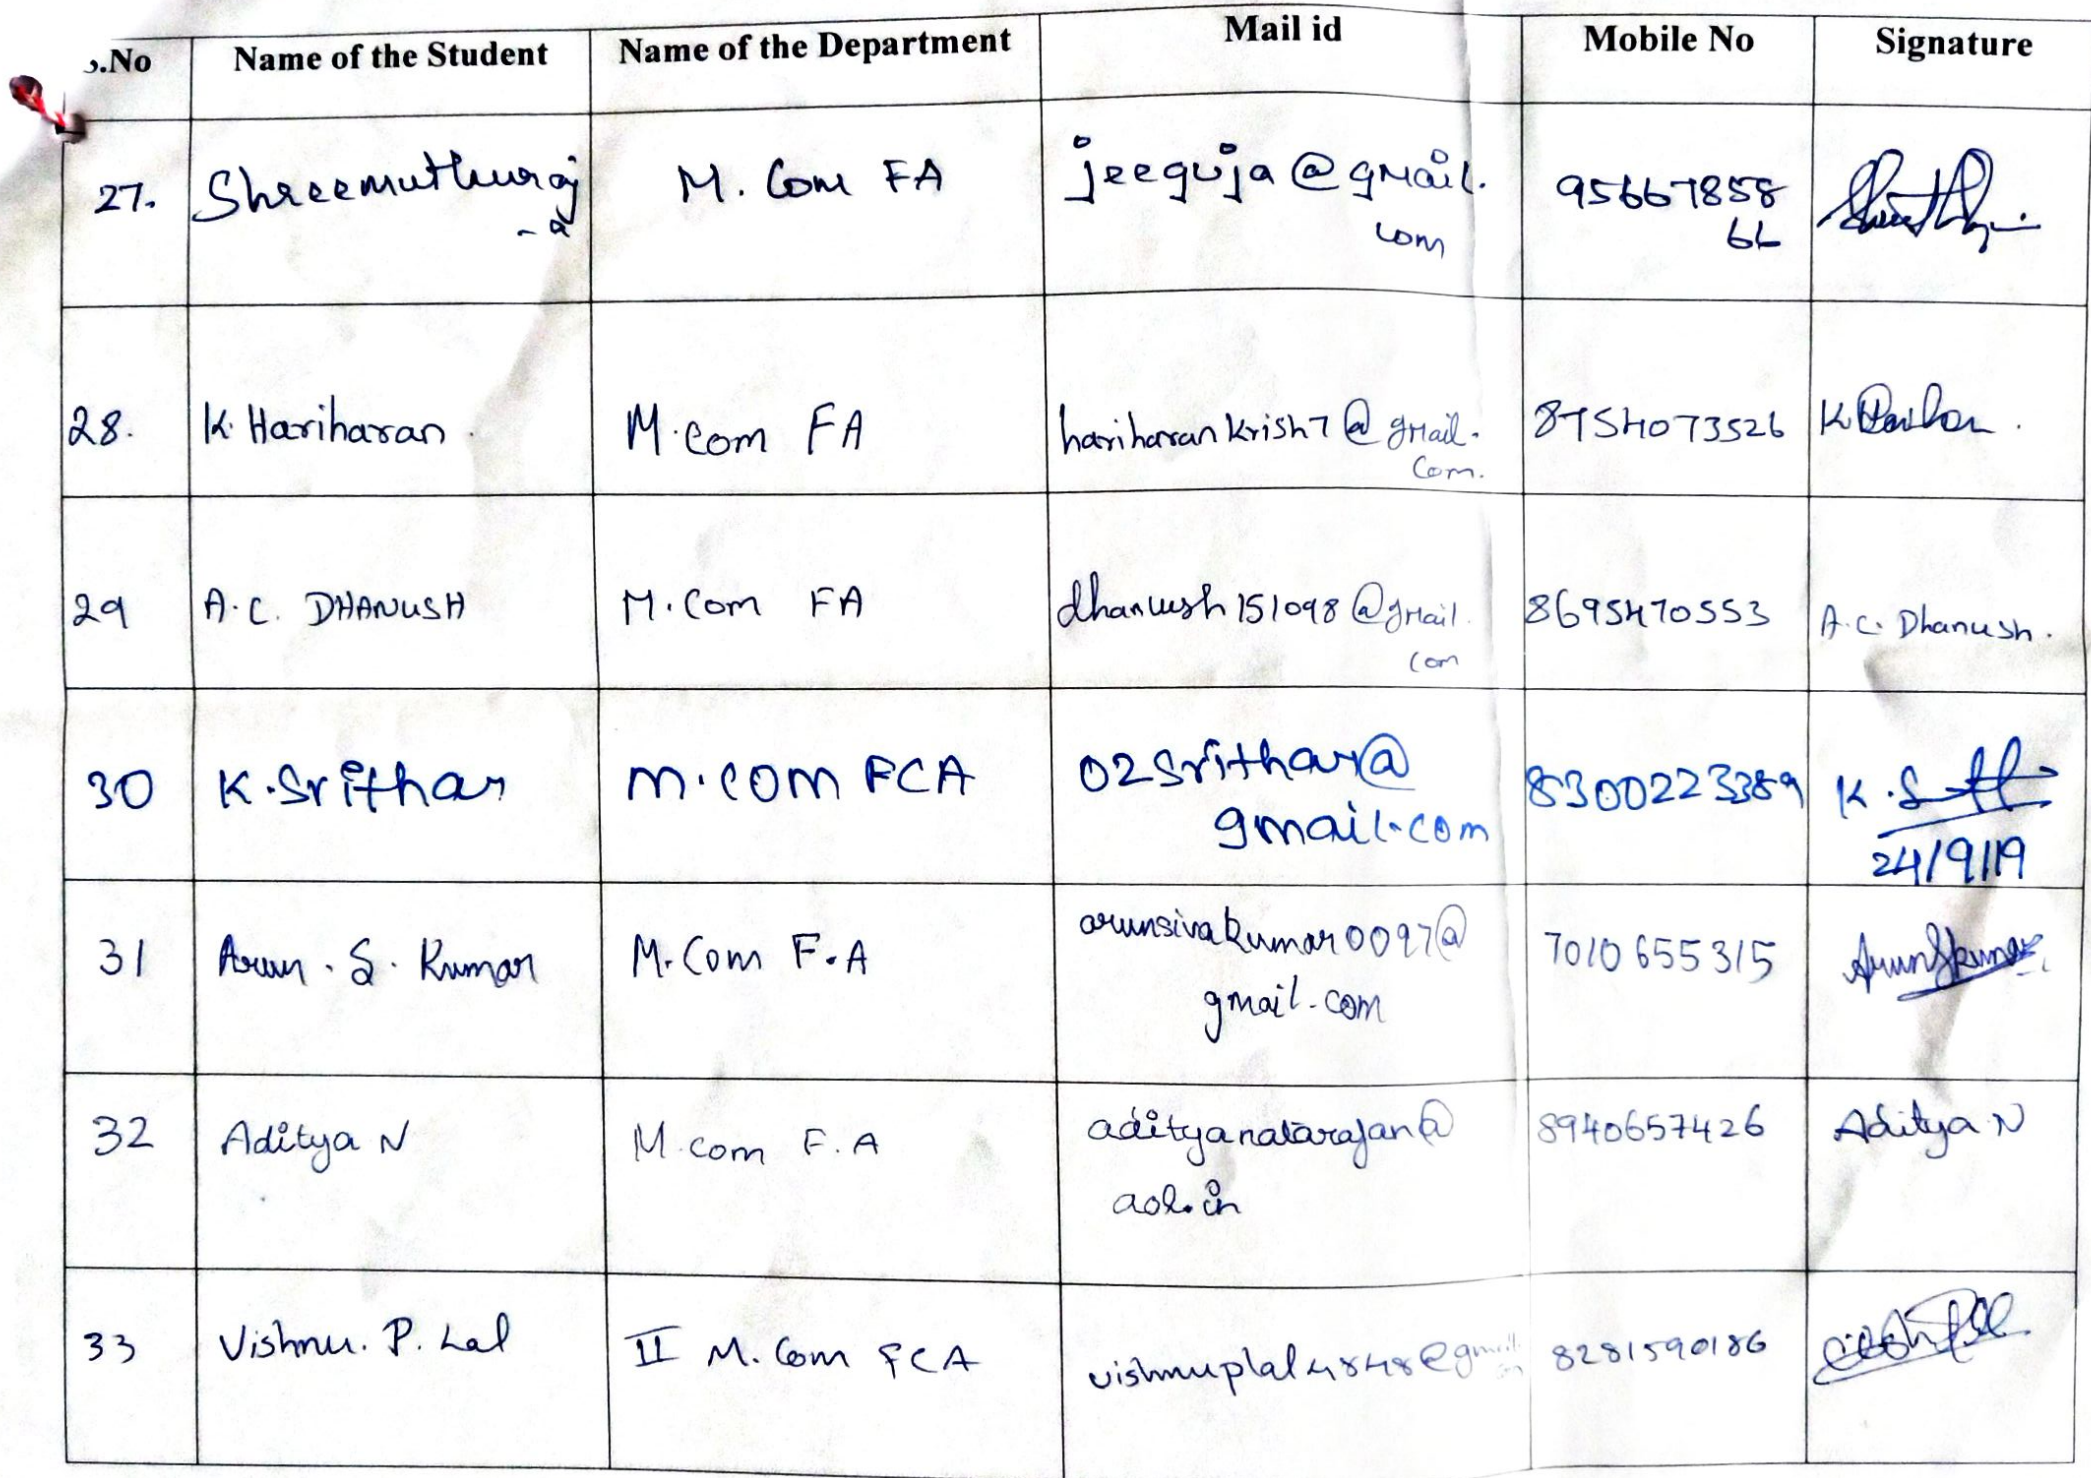 S.No Name of the Student Name of the Department Mail id Mobile No Signature
27. Shreemuthuraj M. Com FA jeeguja@gmail. 95667858
- a com 66
28. K. Hariharan M.Com FA hariharankrish7@gmail. 8754073526 K
Com.
29 A.C. DHANUSH M.Com FA dhanush151098@gmail. 8695470553 A.C. Dhanush.
com
30 K.Srithar M.COM FCA 02Srithar@ 8300223389 K.
gmail.com 24/9/19
31 Arun. S. Kumar M.Com F.A arunsivakumar0097@ 7010655315 ArunSkumar
gmail.com
32 Aditya N M.com F.A adityanatarajan@ 8940657426 Aditya N
aol.in
33 Vishnu. P. Lal II M.Com FCA vishnuplal4848@gmail 8281590186